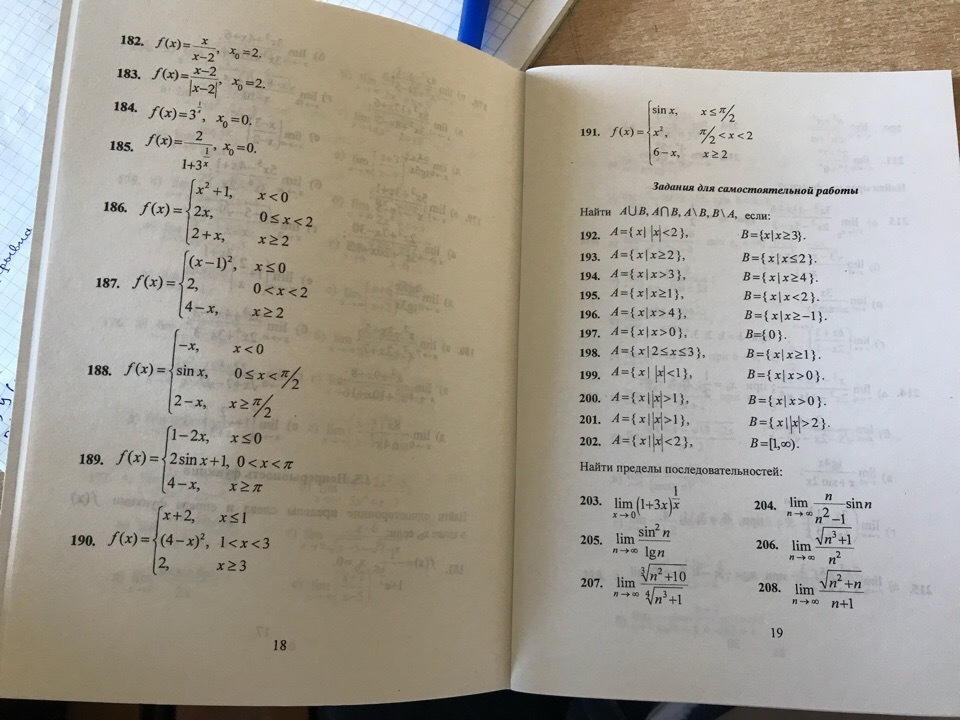 182. f(x)=x/(x−2), x₀=2.
183. f(x)=(x−2)/|x−2|, x₀=2.
184. f(x)=3^(1/x), x₀=0.
185. f(x)=2/(1+3^(1/x)), x₀=0.
186. f(x)={x²+1, x<0
2x, 0≤x<2
2+x, x≥2
187. f(x)={(x−1)², x≤0
2, 0<x<2
4−x, x≥2
188. f(x)={−x, x<0
sin x, 0≤x<π/2
2−x, x≥π/2
189. f(x)={1−2x, x≤0
2sin x+1, 0<x<π
4−x, x≥π
190. f(x)={x+2, x≤1
(4−x)², 1<x<3
2, x≥3
18
191. f(x)={sin x, x≤π/2
x², π/2<x<2
6−x, x≥2
Задания для самостоятельной работы
Найти A∪B, A∩B, A\B, B\A, если:
192. A={x| |x|<2}, B={x|x≥3}.
193. A={x|x≥2}, B={x|x≤2}.
194. A={x|x>3}, B={x|x≥4}.
195. A={x|x≥1}, B={x|x<2}.
196. A={x|x>4}, B={x|x≥−1}.
197. A={x|x>0}, B={0}.
198. A={x|2≤x≤3}, B={x|x≥1}.
199. A={x| |x|<1}, B={x|x>0}.
200. A={x||x|>1}, B={x|x>0}.
201. A={x||x|>1}, B={x||x|>2}.
202. A={x||x|<2}, B=[1,∞).
Найти пределы последовательностей:
203. lim x→0 (1+3x)^(1/x) 204. lim n→∞ n/(n²−1) sin n
205. lim n→∞ sin² n/lg n 206. lim n→∞ √(n³+1)/n²
207. lim n→∞ ∛(n²+10)/∜(n³+1) 208. lim n→∞ √(n²+n)/(n+1)
19